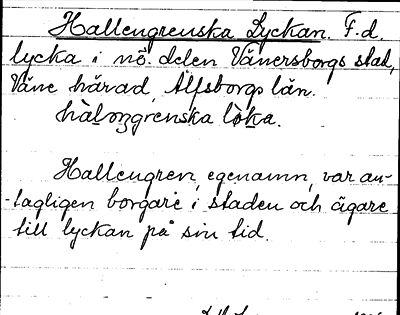 Hallengrenska Lyckan. F.d.
lycka i nö. delen Vänersborgs stad,
Väne härad, Älfsborgs län.
hàlǝngrénska lo̊ka.
Hallengren, egenamn, var an-
-tagligen borgare i staden och ägare
till lyckan på sin tid.